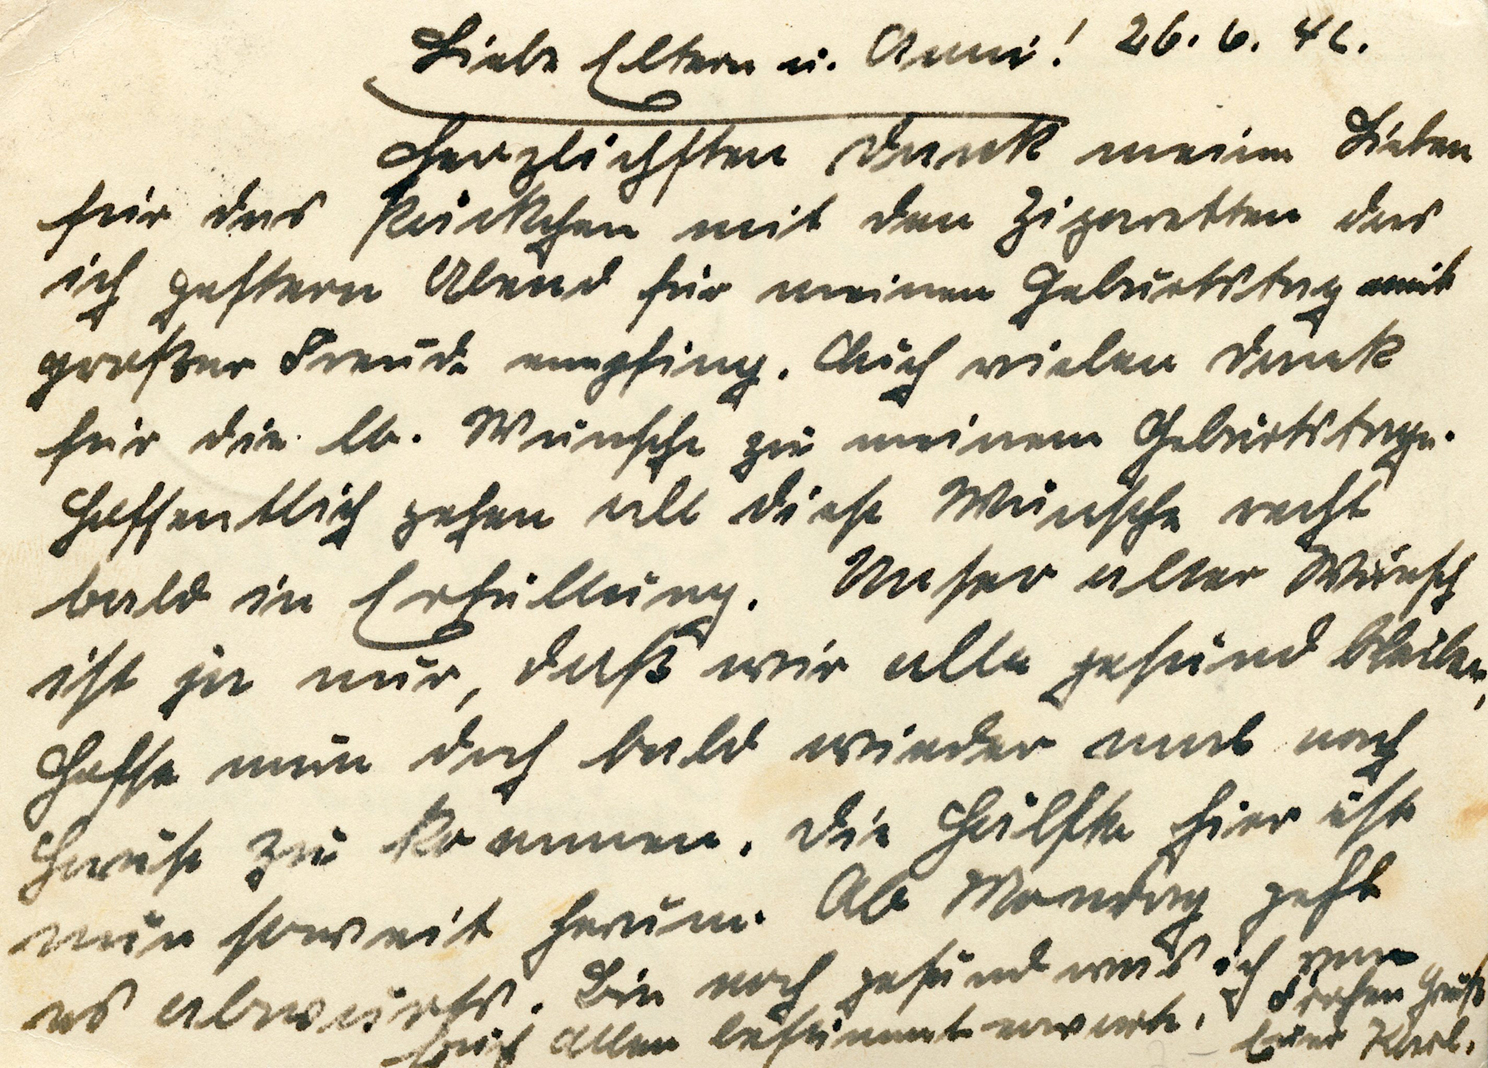 Liebe Eltern u. Anni! 26. 6. 42.
Herzlichsten Dank meine Lieben
für das Päckchen mit den Zigaretten das
ich gestern Abend für meinen Geburtstag mit
großer Freude empfing. Auch vielen Dank
für die lb. Wünsche zu meinem Geburtstage.
Hoffentlich gehen all diese Wünsche recht
bald in Erfüllung. Unser aller Wunsch
ist ja nur, daß wir alle gesund bleiben,
Hoffe nun doch bald wieder mal nach
Hause zu kommen. Die Hälfte hier ist
nun soweit herum. Ab Montag geht
es abwärts. Bin noch gesund was ich von
Euch Allen bestimmt erwarte. Frohen Gruß
Euer Karl.